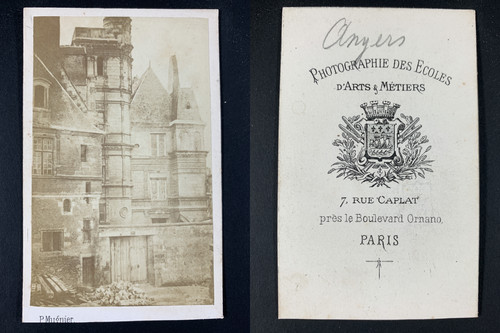 P. Mugnier
Angers
PHOTOGRAPHIE DES ECOLES
D'ARTS & MÉTIERS
7, RUE CAPLAT
près le Boulevard Ornano,
PARIS